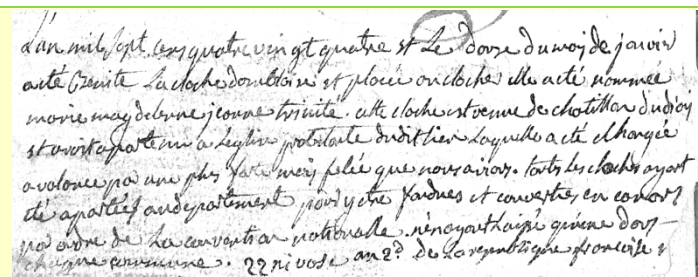 L'an mil sept cens quatre vingt quatre et Le Douze du mois de janvier
a été Benite La cloche dombleise et placée au clocher elle a été nommée
marie magdeleine jeanne trinité. cette cloche est venue de chatillon dudiois
et avoit apartenu a Leglise protestante dudit lieu Laquelle a été Echangée
a valence par une plus forte mais felée que nous avions. touts les cloches ayant
été aportées au departement pour y etre fondues et converties en canons
par ordre de La convention nationalle. n'en ayant Laissé qu'une dans
chaque commune. 22 nivose an 2d. de La republique francoise